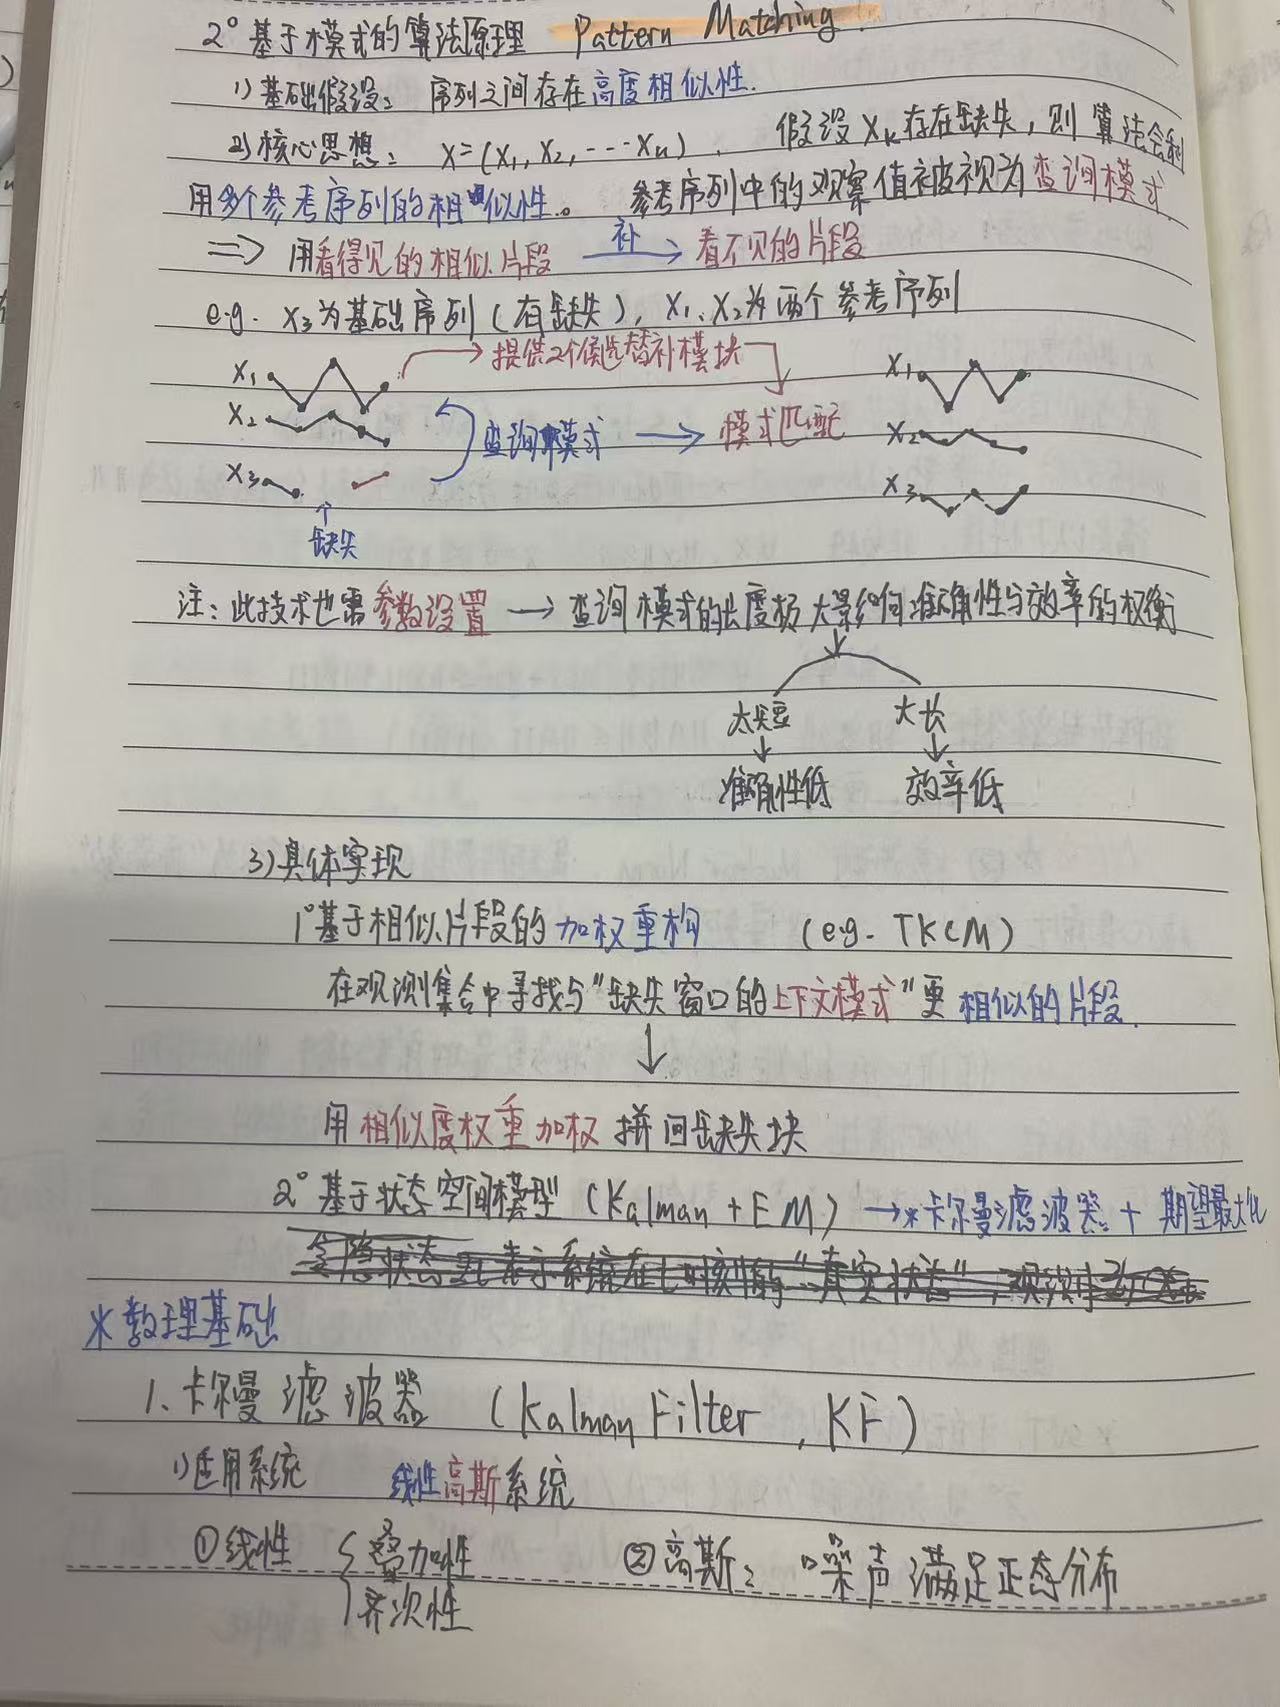 2° 基于模式的算法原理 Pattern Matching
1) 基础假设: 序列之间存在高度相似性.
2) 核心思想: X=(X₁, X₂, ---Xn). 假设Xk存在缺失, 则算法会利
用多个参考序列的相似性。 参考序列中的观察值被视为查询模式.
⇒ 用看得见的相似片段 补→ 看不见的片段
e.g. X₃为基础序列(有缺失), X₁、X₂为两个参考序列
提供2个候选替补模块
X₁
X₂
X₃
查询模式 → 模式匹配
X₁
X₂
X₃
↑
缺失
注: 此技术也需参数设置 → 查询模式的长度极大影响准确性与效率的权衡
太短 太长
↓ ↓
准确性低 效率低
3) 具体实现
1° 基于相似片段的加权重构 (e.g. TKCM)
在观测集合中寻找与"缺失窗口的上下文模式"更相似的片段.
↓
用相似度权重加权拼回缺失块
2° 基于状态空间模型 (Kalman + EM) →*卡尔曼滤波器 + 期望最大化
*数理基础
1. 卡尔曼滤波器 (Kalman Filter, KF)
1) 适用系统 线性高斯系统
①线性 { 叠加性 ②高斯: 噪声满足正态分布
齐次性